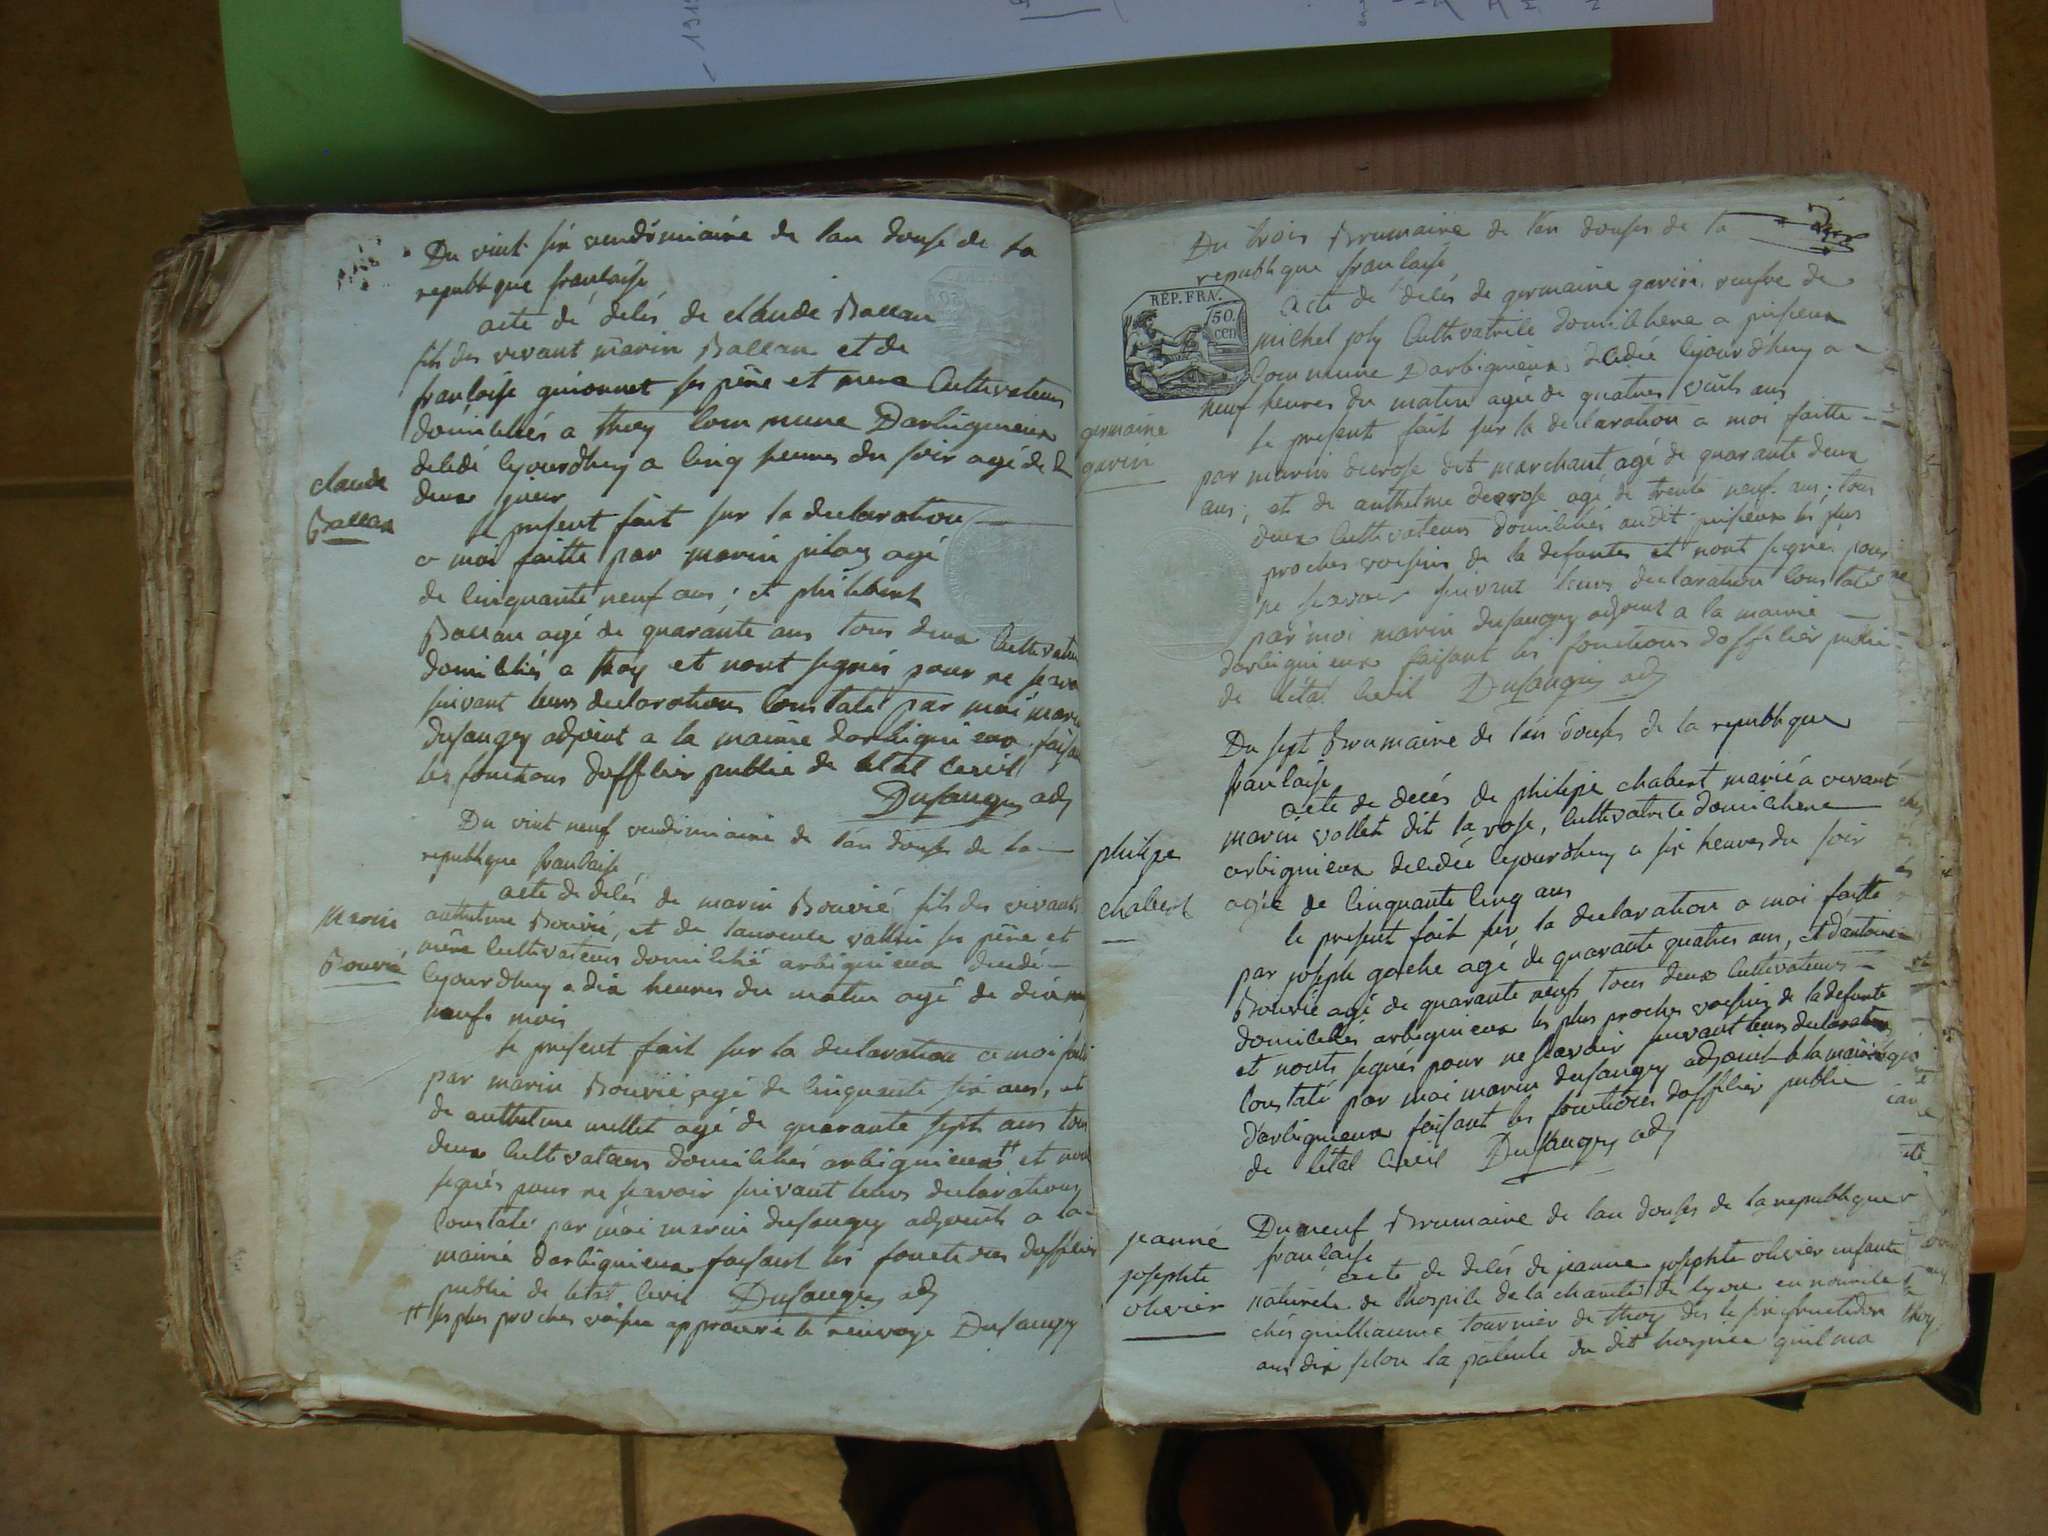 Du vint six vendémiaire de lan douse de la
republique francaise
acte de décés de claude Ballan
fils des vivant marin Ballan et de
francoise guionnet ses père et mere Cultivateurs
domiciliés a thoy commune Darbignieux
décédé cejourdhuy a cinq heures du soir agé de
deux jours
claude
Ballan
le présent fait sur la declaration
a moi faitte par marin pilaz agé
de cinquante neuf ans ; et philibert
Ballan agé de quarante ans tous deux Cultivateurs
domiciliés a thoy et nont signés pour ne scavoir
suivant leurs declarations Constaté par moi marin
dusaugey adjoint a la mairie darbignieux faisant
les fonctions dofficier public de létat Civil
Dusaugey adj
Du vint neuf vendimiaire de lan douse de la
republique francaise
acte de décés de marin Bouvié fils des vivants
anthelme Bouvié, et de laurence vallin ses père et
mère Cultivateurs domicilié arbignieux décédé
cejourdhuy a dix heures du matin agé de dix
neufs mois
Marin
Bouvié
le présent fait sur la declaration a moi faitte
par marin Bouvié agé de cinquante six ans, et
de anthelme mellet agé de quarante sept ans tous
deux Cultivateurs domiciliés arbignieux # et nont
signés pour ne scavoir suivant leurs declarations
Constaté par moi marin dusaugey adjoint a la
mairie darbignieux faisant les fonctions dofficier
public de létat Civil Dusaugey adj
# les plus proches voisins approuvé le renvoye Dusaugey
Du trois Brumaire de l'an douses de la
republique francaise
REP. FRA.
50.
CEN
acte de décés de germaine gavin, veufve de
michel joly Cultivatrice domiciliene a
Commune Darbignieux, décédée cejourdhuy a
neuf heures du matin agée de quatres vints ans
germaine
gavin
le présent fait sur la declaration a moi faitte
par marin decrose dit marchant agé de quarante deux
ans, et de anthelme decrose agé de trente neuf ans ; tous
deux Cultivateurs domiciliés audit les plus
proches voisins de la defunte et nont signés pour
ne scavoir suivant leurs declaration Constaté
par moi marin dusaugey adjoint a la mairie
darbignieux faisant les fonctions dofficier public
de létat Civil Dusaugey adj
Du sept Brumaire de lan douses de la republique
francaise
acte de decés de philipe chabert mariée a vivant
marin vollet dit la rose, Cultivatrice domiciliene
arbignieux décédée cejourdhuy a six heures du soir
agée de cinquante cinq ans
philipe
chabert
le present fait sur la declaration a moi faitte
par joseph gache agé de quarante quatres ans, et dantoine
Bouvié agé de quarante neufs tous deux Cultivateurs
domiciliés arbignieux les plus proches voisins de la defunte
et nonts signés pour ne scavoir suivant leurs declarations
Constaté par moi marin dusaugey adjoint a la mairie
darbignieux faisant les fonctions dofficier public
de létat Civil Dusaugey adj
Du neuf Brumaire de lan douses de la republique
francaise
acte de décés de jeanne josephte olivier enfante
naturele de lhospice de la charité de lyon en nourice
chés guilliaume tournier de thoy dès le six fructidor
ans dix selon la patente du dit hospice quil ma
jeanne
josephte
olivier